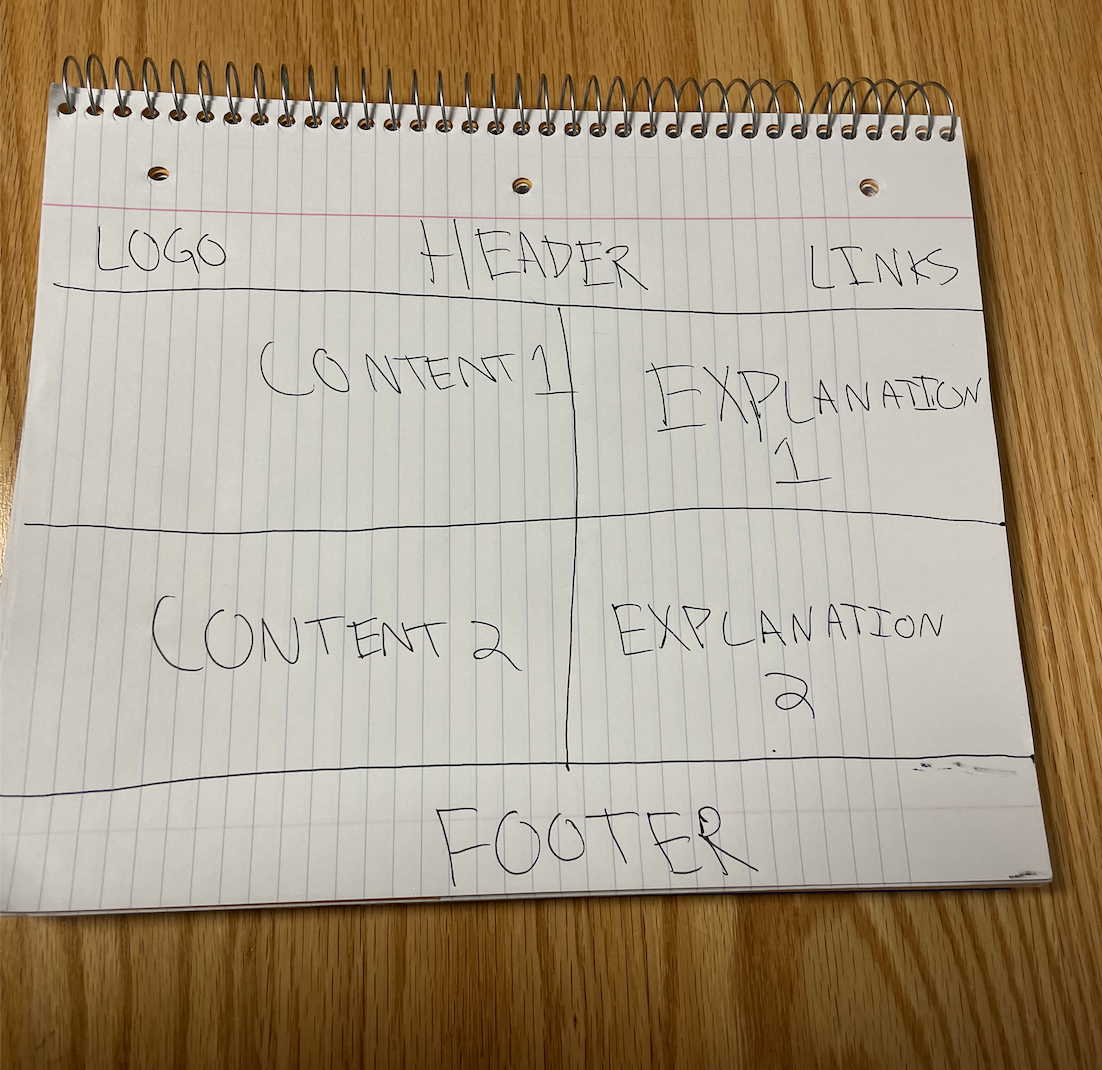 LOGO HEADER LINKS
CONTENT 1 EXPLANATION
1
CONTENT 2 EXPLANATION
2
FOOTER